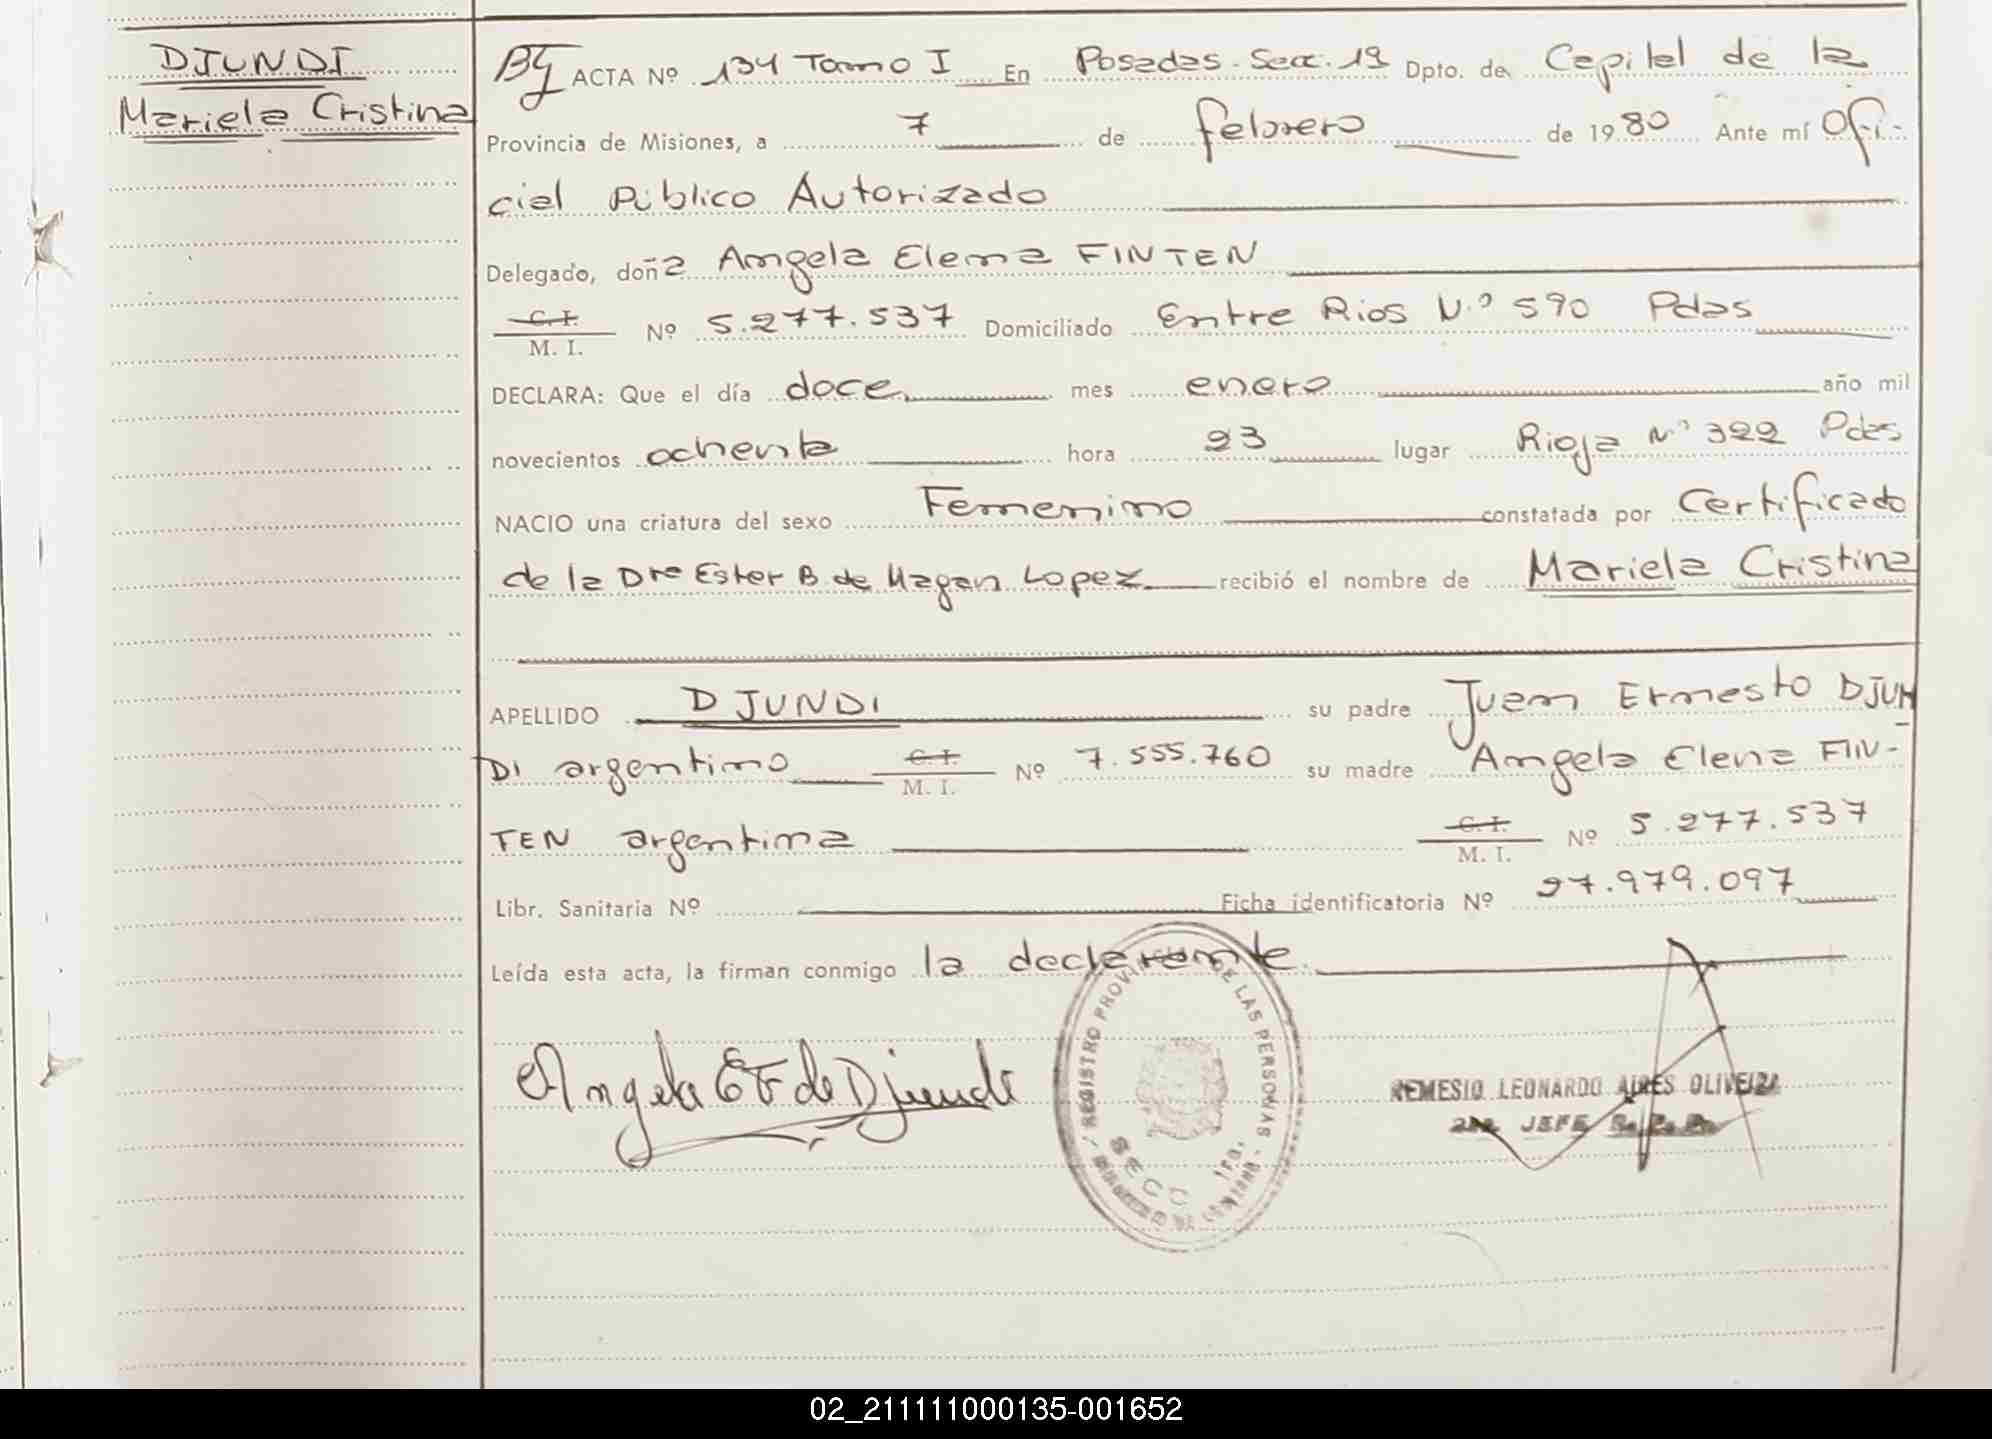 DJUNDI
Mariela Cristina
ACTA Nº 134 Tomo I En Posadas. Secc. 1ª Dpto. de Capital de la
Provincia de Misiones, a 7 de febrero de 1980 Ante mí Ofi-
cial Público Autorizado
Delegado, doña Angela Elena FINTEN
C. I.
M. I. Nº 5.277.537 Domiciliado Entre Rios N.º 590 Pdas
DECLARA: Que el día doce mes enero año mil
novecientos ochenta hora 23 lugar Rioja Nº 322 Pdas
NACIO una criatura del sexo Femenino constatada por Certificado
de la Dra Ester B. de Magan Lopez recibió el nombre de Mariela Cristina
APELLIDO DJUNDI su padre Juan Ernesto DJUN
DI argentino C. I. M. I. Nº 7.555.760 su madre Angela Elena FIN-
TEN argentina C. I. M. I. Nº 5.277.537
Libr. Sanitaria Nº Ficha identificatoria Nº 27.979.097
Leída esta acta, la firman conmigo la declarante.
Angela E F de Djundi
REGISTRO PROVINCIAL DE LAS PERSONAS
SECC 1ra.
REMESIO LEONARDO AIRES OLIVEIRA
JEFE
02_211111000135-001652